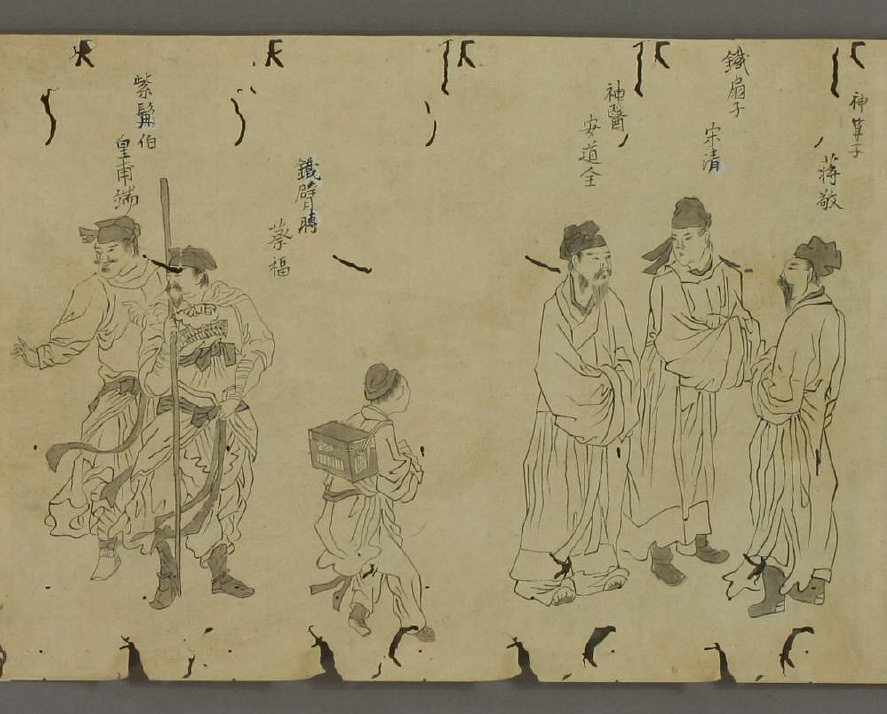 神算子
蒋敬
鐵扇子
宋清
神醫
安道全
鐵臂膊
蔡福
紫髯伯
皇甫端